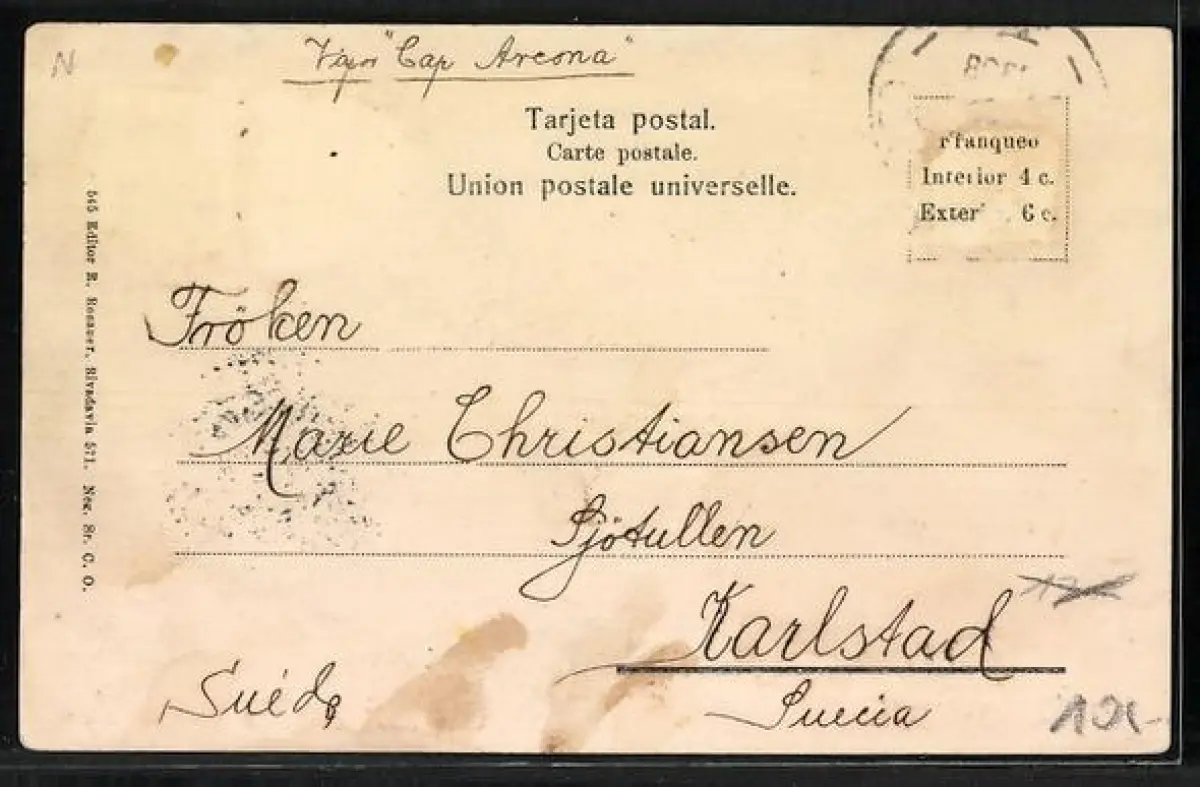 N
Vapor "Cap Arcona"
Tarjeta postal.
Carte postale.
Union postale universelle.
Franqueo
Interior 4 c.
Exter 6 c.
Fröken
Marie Christiansen
Sjötullen
Karlstad
Suède
Suecia
565 Editor R. Rosauer, Rivadavia 571. Nec. Sr. C. O.